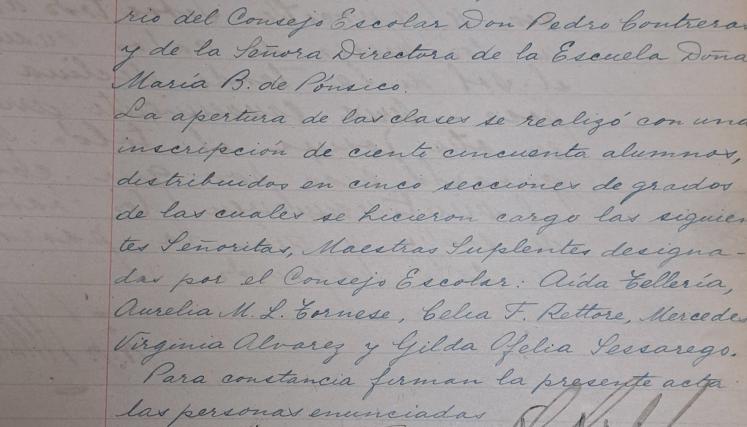 rio del Consejo Escolar Don Pedro Contreras
y de la Señora Directora de la Escuela Doña
María B. de Pónsico.
La apertura de las clases se realizó con una
inscripción de ciento cincuenta alumnos,
distribuidos en cinco secciones de grados
de las cuales se hicieron cargo las siguien
tes Señoritas, Maestras Suplentes designa-
das por el Consejo Escolar: Aída Tellería,
Aurelia M. L. Tornese, Celia F. Rettore, Mercedes
Virginia Alvarez y Gilda Ofelia Sessarego.
Para constancia firman la presente acta
las personas enunciadas